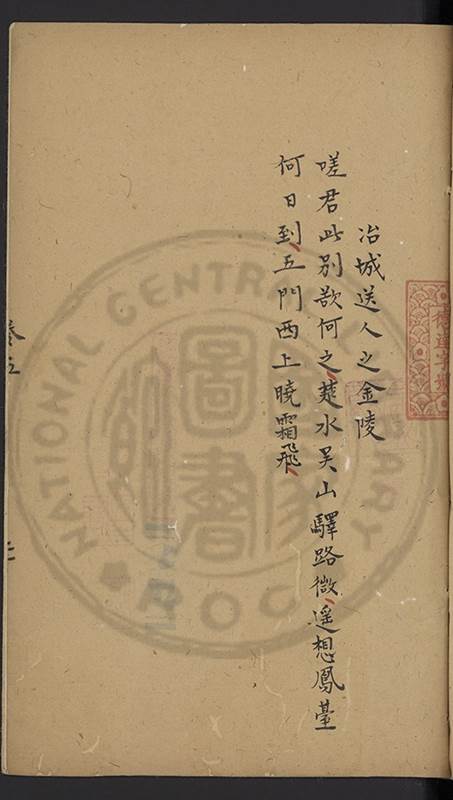 冶城送人之金陵
嗟君此別欲何之楚水吳山驛路微遥想鳳臺
何日到五門西上曉霜飛
卷五
NATIONAL CENTRAL LIBRARY
ROC